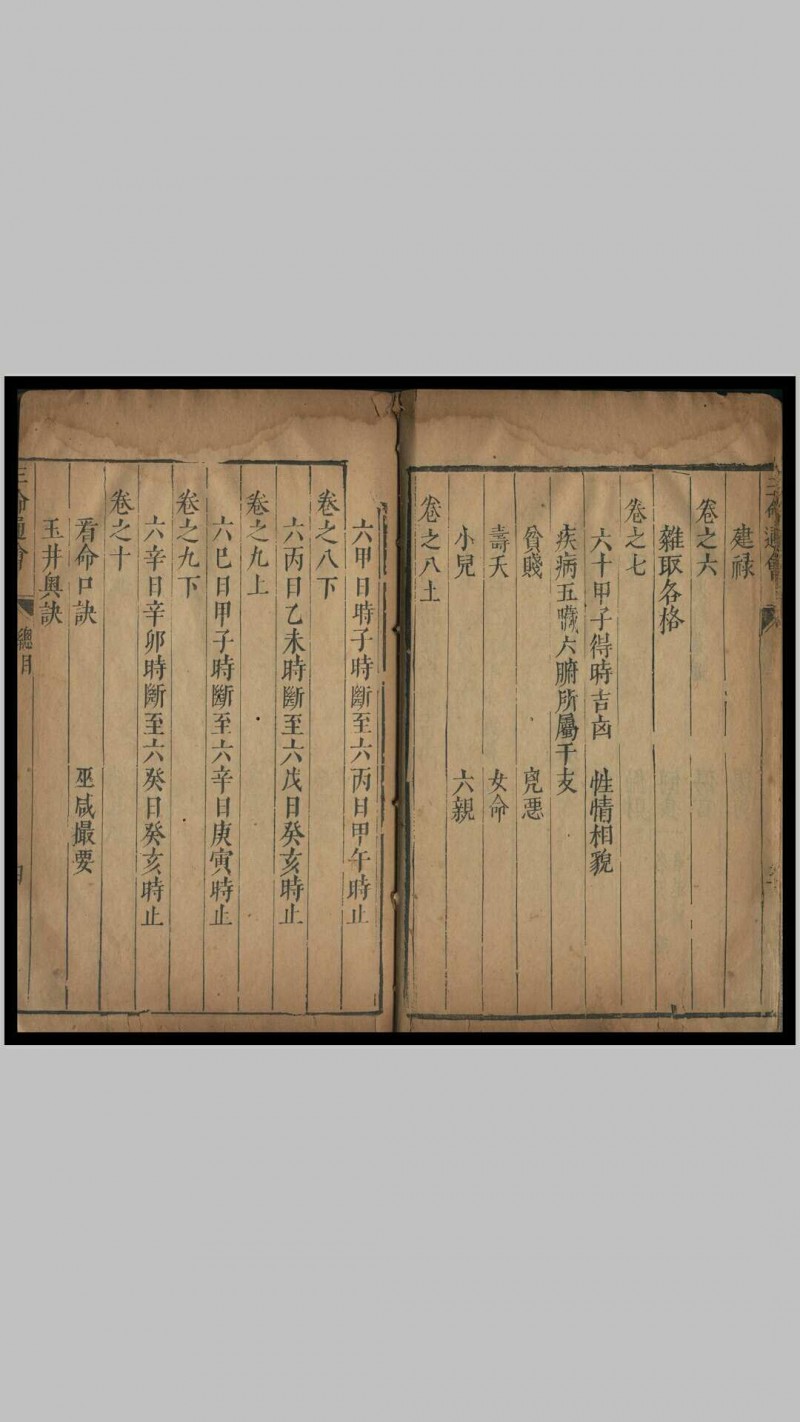 三命通會
建禄
卷之六
雜取各格
卷之七
六十甲子得時吉凶 性情相貌
疾病五臟六腑所屬干支
貧賤 兇惡
壽夭 女命
小兒 六親
卷之八上
六甲日時子時斷至六丙日甲午時止
卷之八下
六丙日乙未時斷至六戊日癸亥時止
卷之九上
六巳日甲子時斷至六辛日庚寅時止
卷之九下
六辛日辛卯時斷至六癸日癸亥時止
卷之十
看命口訣 巫咸撮要
玉井奥訣
三命通會 總目